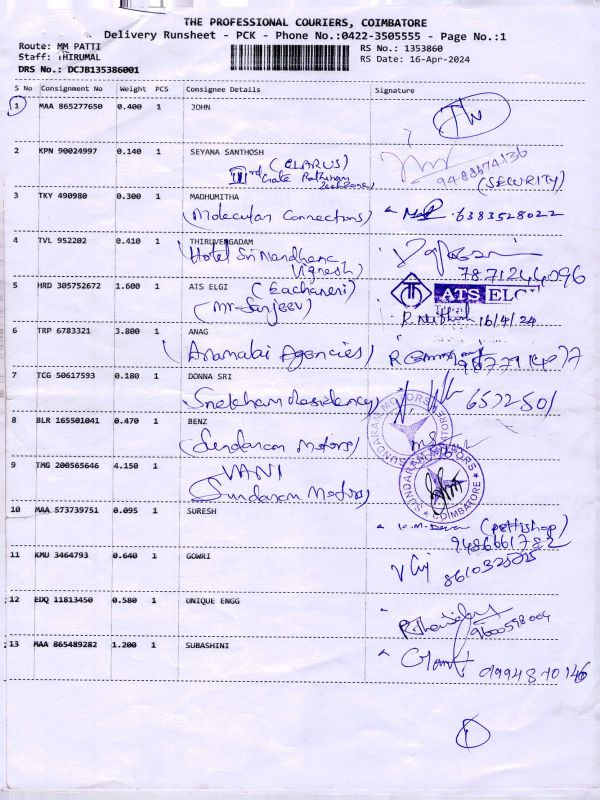 THE PROFESSIONAL COURIERS, COIMBATORE
Delivery Runsheet - PCK - Phone No.:0422-3505555 - Page No.:1
Route: MM PATTI
Staff: THIRUMAL
DRS No.: DCJB135386001
RS No.: 1353860
RS Date: 16-Apr-2024
S No Consignment No Weight PCS Consignee Details Signature
1 MAA 865277650 0.400 1 JOHN
2 KPN 90024997 0.140 1 SEYANA SANTHOSH
(CLARUS)
Gate
9488674136
(SECURITY)
3 TKY 490980 0.300 1 MADHUMITHA
(Molecular Connections) 6383528022
4 TVL 952202 0.410 1 THIRUVENGADAM
Hotel Sri Nandhana
Vignesh)
7871244096
5 HRD 305752672 1.600 1 ATS ELGI (Eachanari)
(Mr-Sanjeev)
ATS ELGI
16/4/24
6 TRP 6783321 3.800 1 ANAG
(Anamalai Agencies)
7 TCG 50617593 0.180 1 DONNA SRI
Residency 6572501
8 BLR 165501041 0.470 1 BENZ
(Sundaram Motors)
SUNDARAM MOTORS
COIMBATORE
9 TMG 200565646 4.150 1 VANI
(Sundaram Motors)
SUNDARAM MOTORS
COIMBATORE
10 MAA 573739751 0.095 1 SURESH
K.M. (pettishop)
9486661782
11 KMU 3464793 0.640 1 GOWRI
12 EDQ 11813450 0.580 1 UNIQUE ENGG
9600598004
13 MAA 865489282 1.200 1 SUBASHINI
0994870146
1